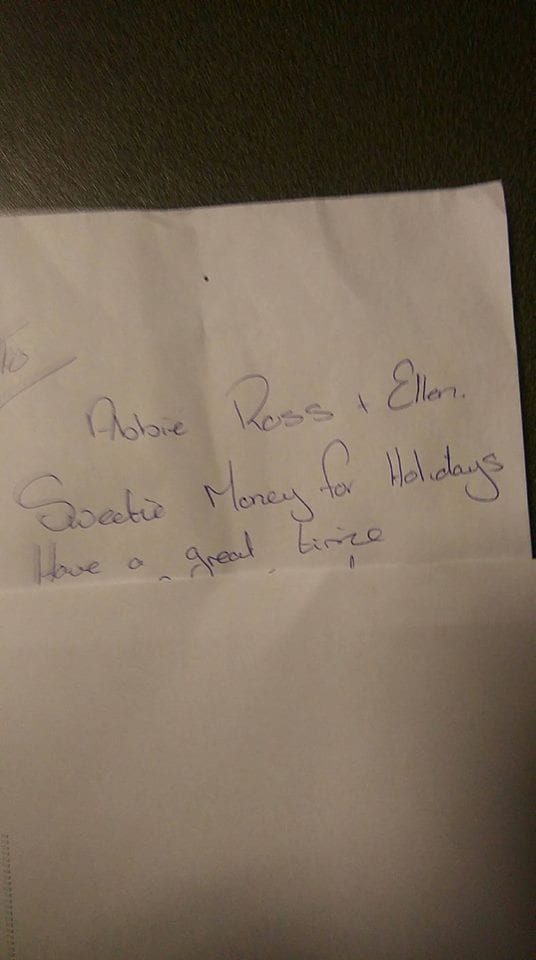 Abbie Ross + Ellen.
Sweetie Money for Holidays
Have a great time